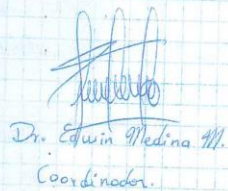 Dr. Edwin Medina M.
Coordinador.